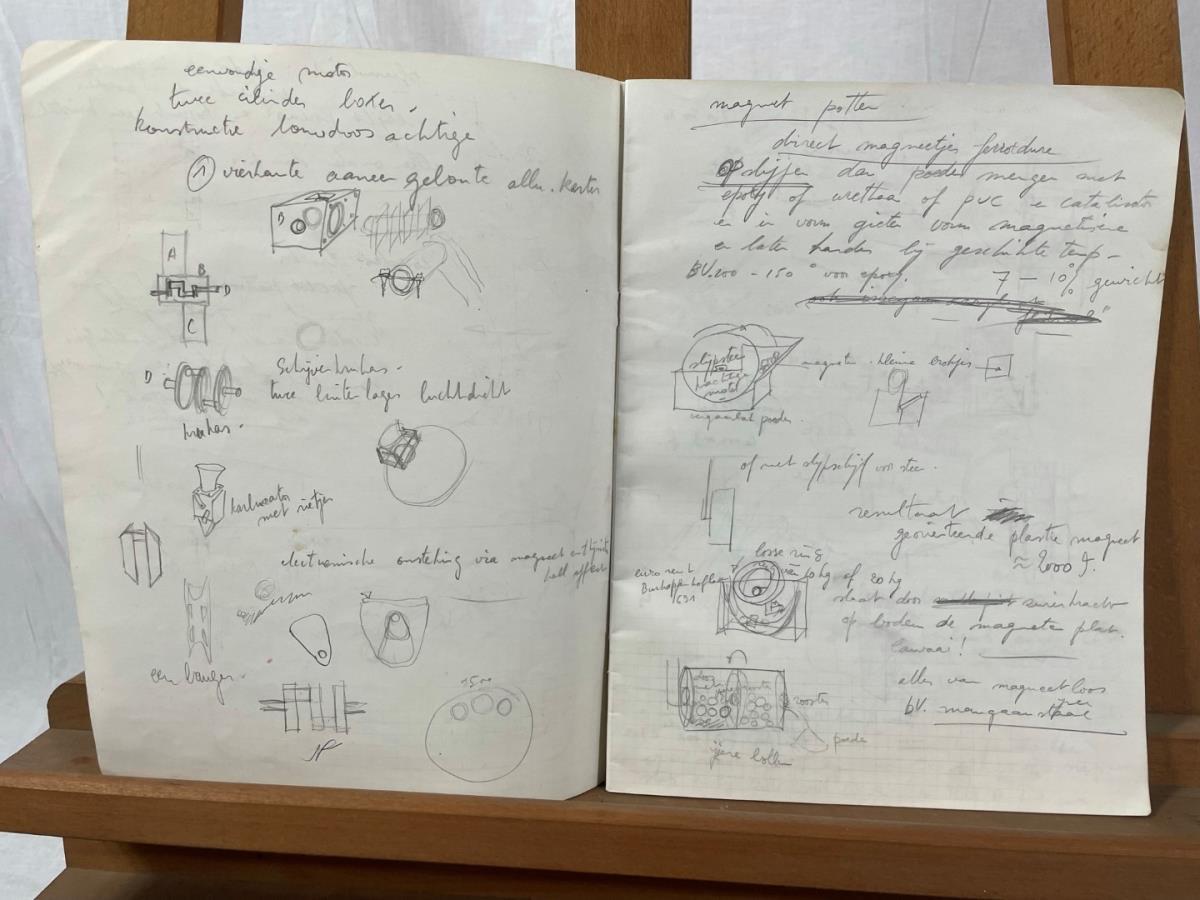 eenvoudige motor
twee cilinder boxer.
konstructie bouwdoosachtige
① vierkante aaneen gelaste allu. karter
D
A
B
D
C
D
Schijvenkrukas.
twee buitenlagers luchtdicht
krukas.
karburator
met rietjes
electronische onsteking via magneet en
hall effect
magnet potten
direct magneetjes ferroxdure
slijpen dan poeder mengen met
epoxy of urethaan of PVC e catalisator
en in vorm gieten vorm magnetisere
en later harden bij geschikte temp -
BV. 200 - 150° voor epoxy.
7 - 10% gewicht
slijpsteen
motor
magneten
kleine brokjes
vergaarbak poeder.
of met slijpschijf voor steen.
resultaat
georiënteerde plastic magneet
≈ 2000 g.
losse ring
van 10 kg of 20 kg
1631
draait door
op bodem de magneten plat.
lawaai!
alles van magneetloos
bv. mangaanstaal
rooster
poeder
ijzere bollen